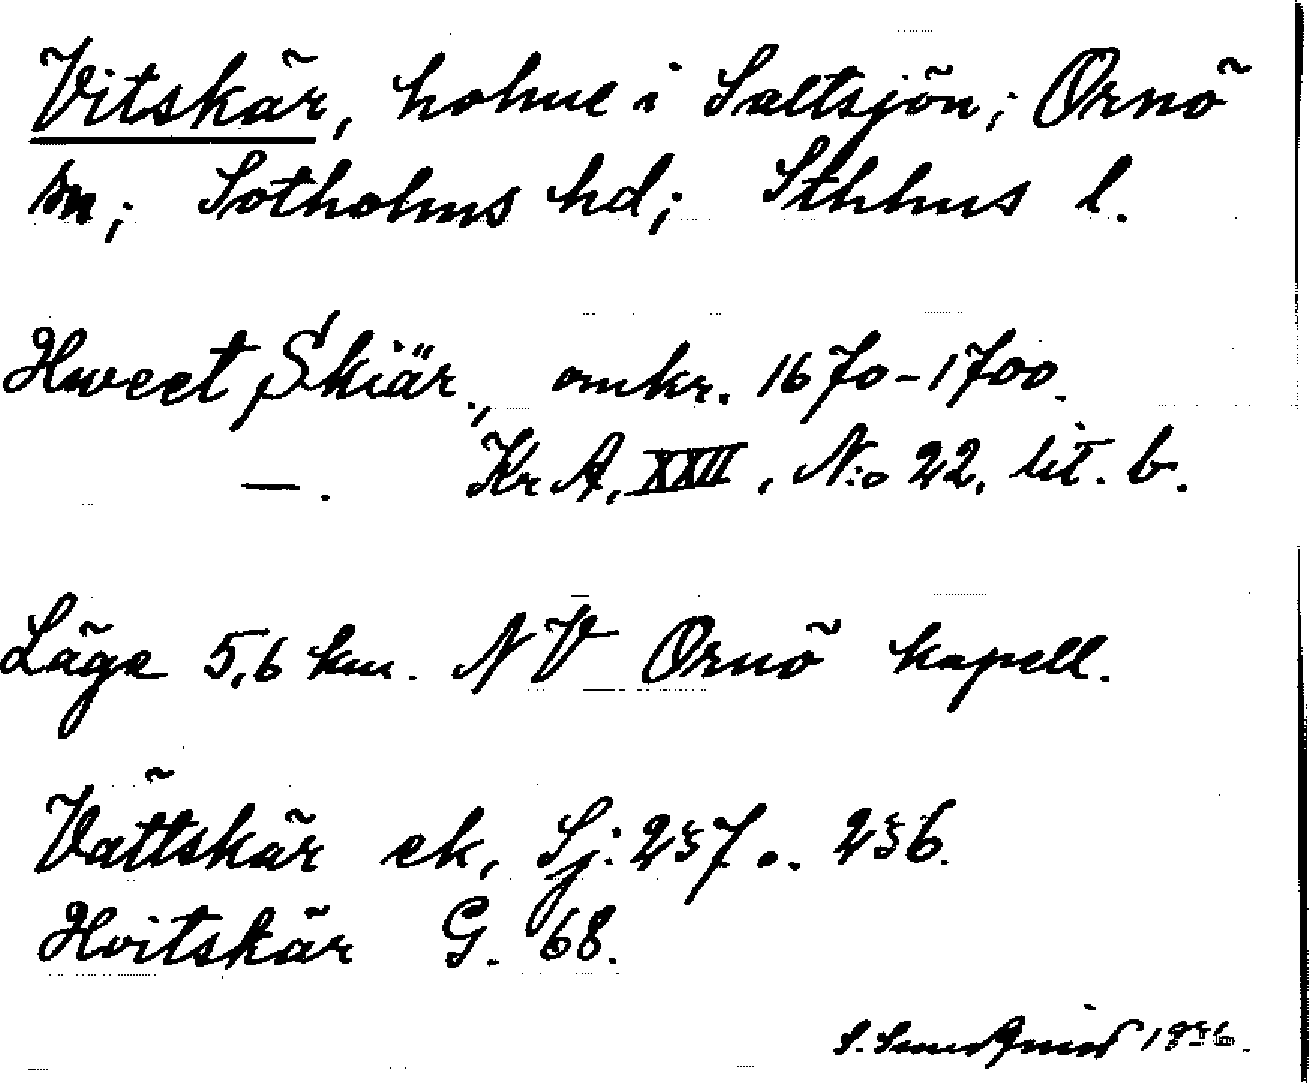 Vitskär, holme i Saltsjön; Ornö
sn; Sotholms hd; Sthlms l.
Hweet Skiär, omkr. 1670-1700.
—. Kr A, XXII, N:o 22, lit. b.
Läge 5,6 km. NV Ornö kapell.
Vättskär ek, Sj: 257 o. 256.
Hvitskär G. 68.
S.